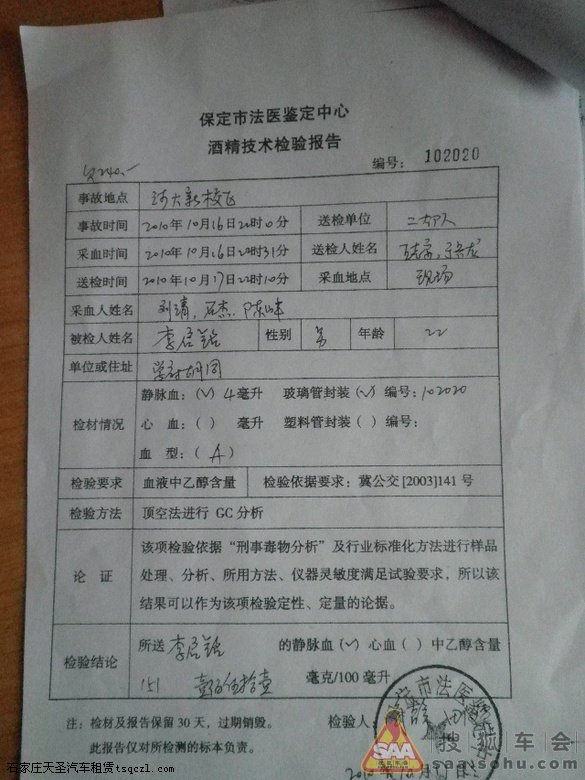 保定市法医鉴定中心
酒精技术检验报告
编号: 102020
事故地点 河大新校区
事故时间 2010年10月16日22时0分 送检单位
采血时间 2010年10月26日22时31分 送检人姓名
送检时间 2010年10月17日22时10分 采血地点 现场
采血人姓名 刘靖,石杰.陈峰
被检人姓名 李启铭 性别 男 年龄 22
单位或住址 胡同
检材情况
静脉血:(√)4毫升 玻璃管封装(√)编号:102020
心 血:( ) 毫升 塑料管封装( )编号:
血 型:( A )
检验要求 血液中乙醇含量 检验依据要求:冀公交[2003]141号
检验方法 顶空法进行 GC 分析
论 证
该项检验依据“刑事毒物分析”及行业标准化方法进行样品
处理、分析、所用方法、仪器灵敏度满足试验要求,所以该
结果可以作为该项检验定性、定量的论据。
检验结论
所送 李启铭 的静脉血(√)心血( )中乙醇含量
151 壹百伍拾壹 毫克/100毫升
注:检材及报告保留30天,过期销毁。
此报告仅对所检测的标本负责。
检验人:
保定市法医
SAA
搜狐车会
saa.sohu.com
石家庄天圣汽车租赁tsqczl.com